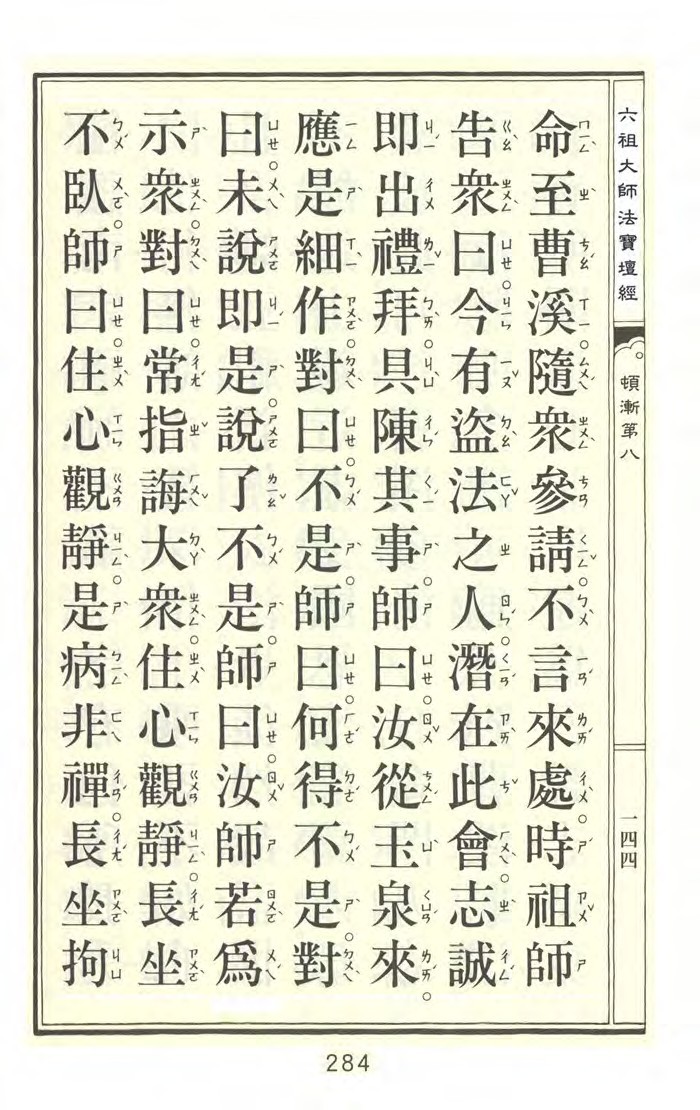 六祖大師法寶壇經 頓漸第八 一四四
命至曹溪隨衆參請不言來處時祖師
告衆曰今有盜法之人潛在此會志誠
即出禮拜具陳其事師曰汝從玉泉來
應是細作對曰不是師曰何得不是對
曰未說即是說了不是師曰汝師若為
示衆對曰常指誨大衆住心觀靜長坐
不臥師曰住心觀靜是病非禪長坐拘
284